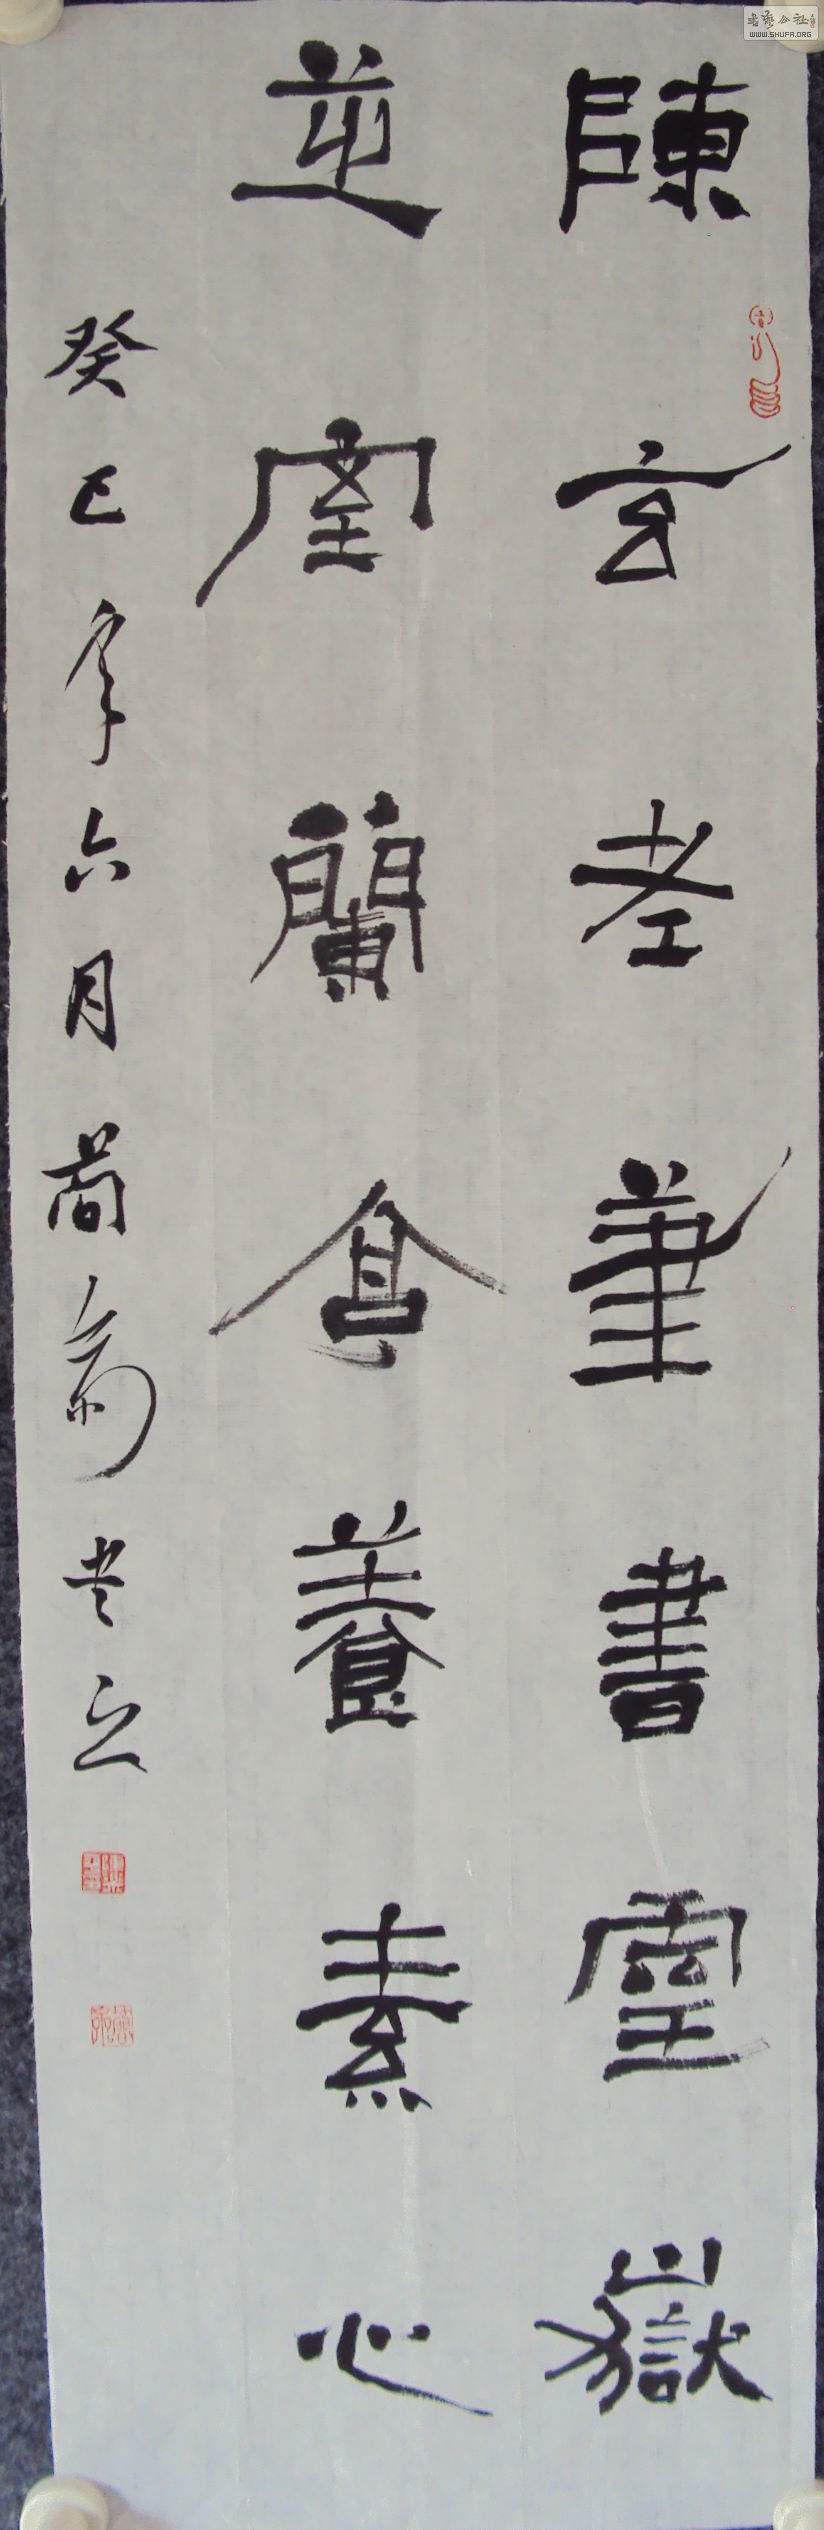 陳玄老筆書靈嶽
芝室蘭養素心
癸巳年六月書之
書藝公社
WWW.SHUFA.ORG